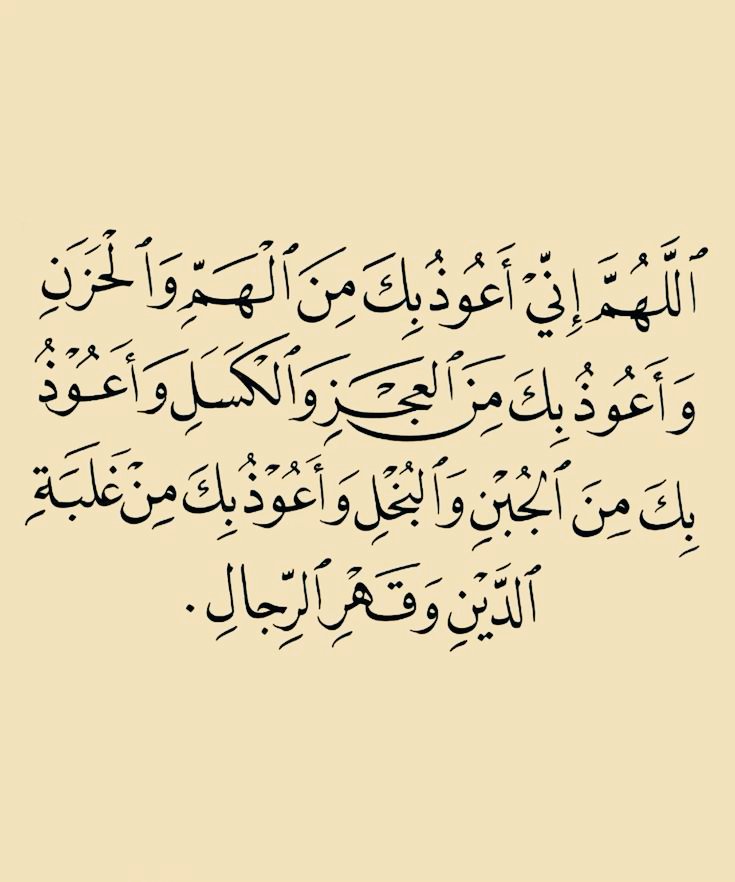 ٱللَّهُمَّ إِنِّيْ أَعُوْذُ بِكَ مِنَ ٱلْهَمِّ وَٱلْحَزَنِ
وَأَعُوْذُ بِكَ مِنَ ٱلْعَجْزِ وَٱلْكَسَلِ وَأَعُوْذُ
بِكَ مِنَ ٱلْجُبْنِ وَٱلْبُخْلِ وَأَعُوْذُ بِكَ مِنْ غَلَبَةِ
ٱلدَّيْنِ وَقَهْرِ ٱلرِّجالِ.